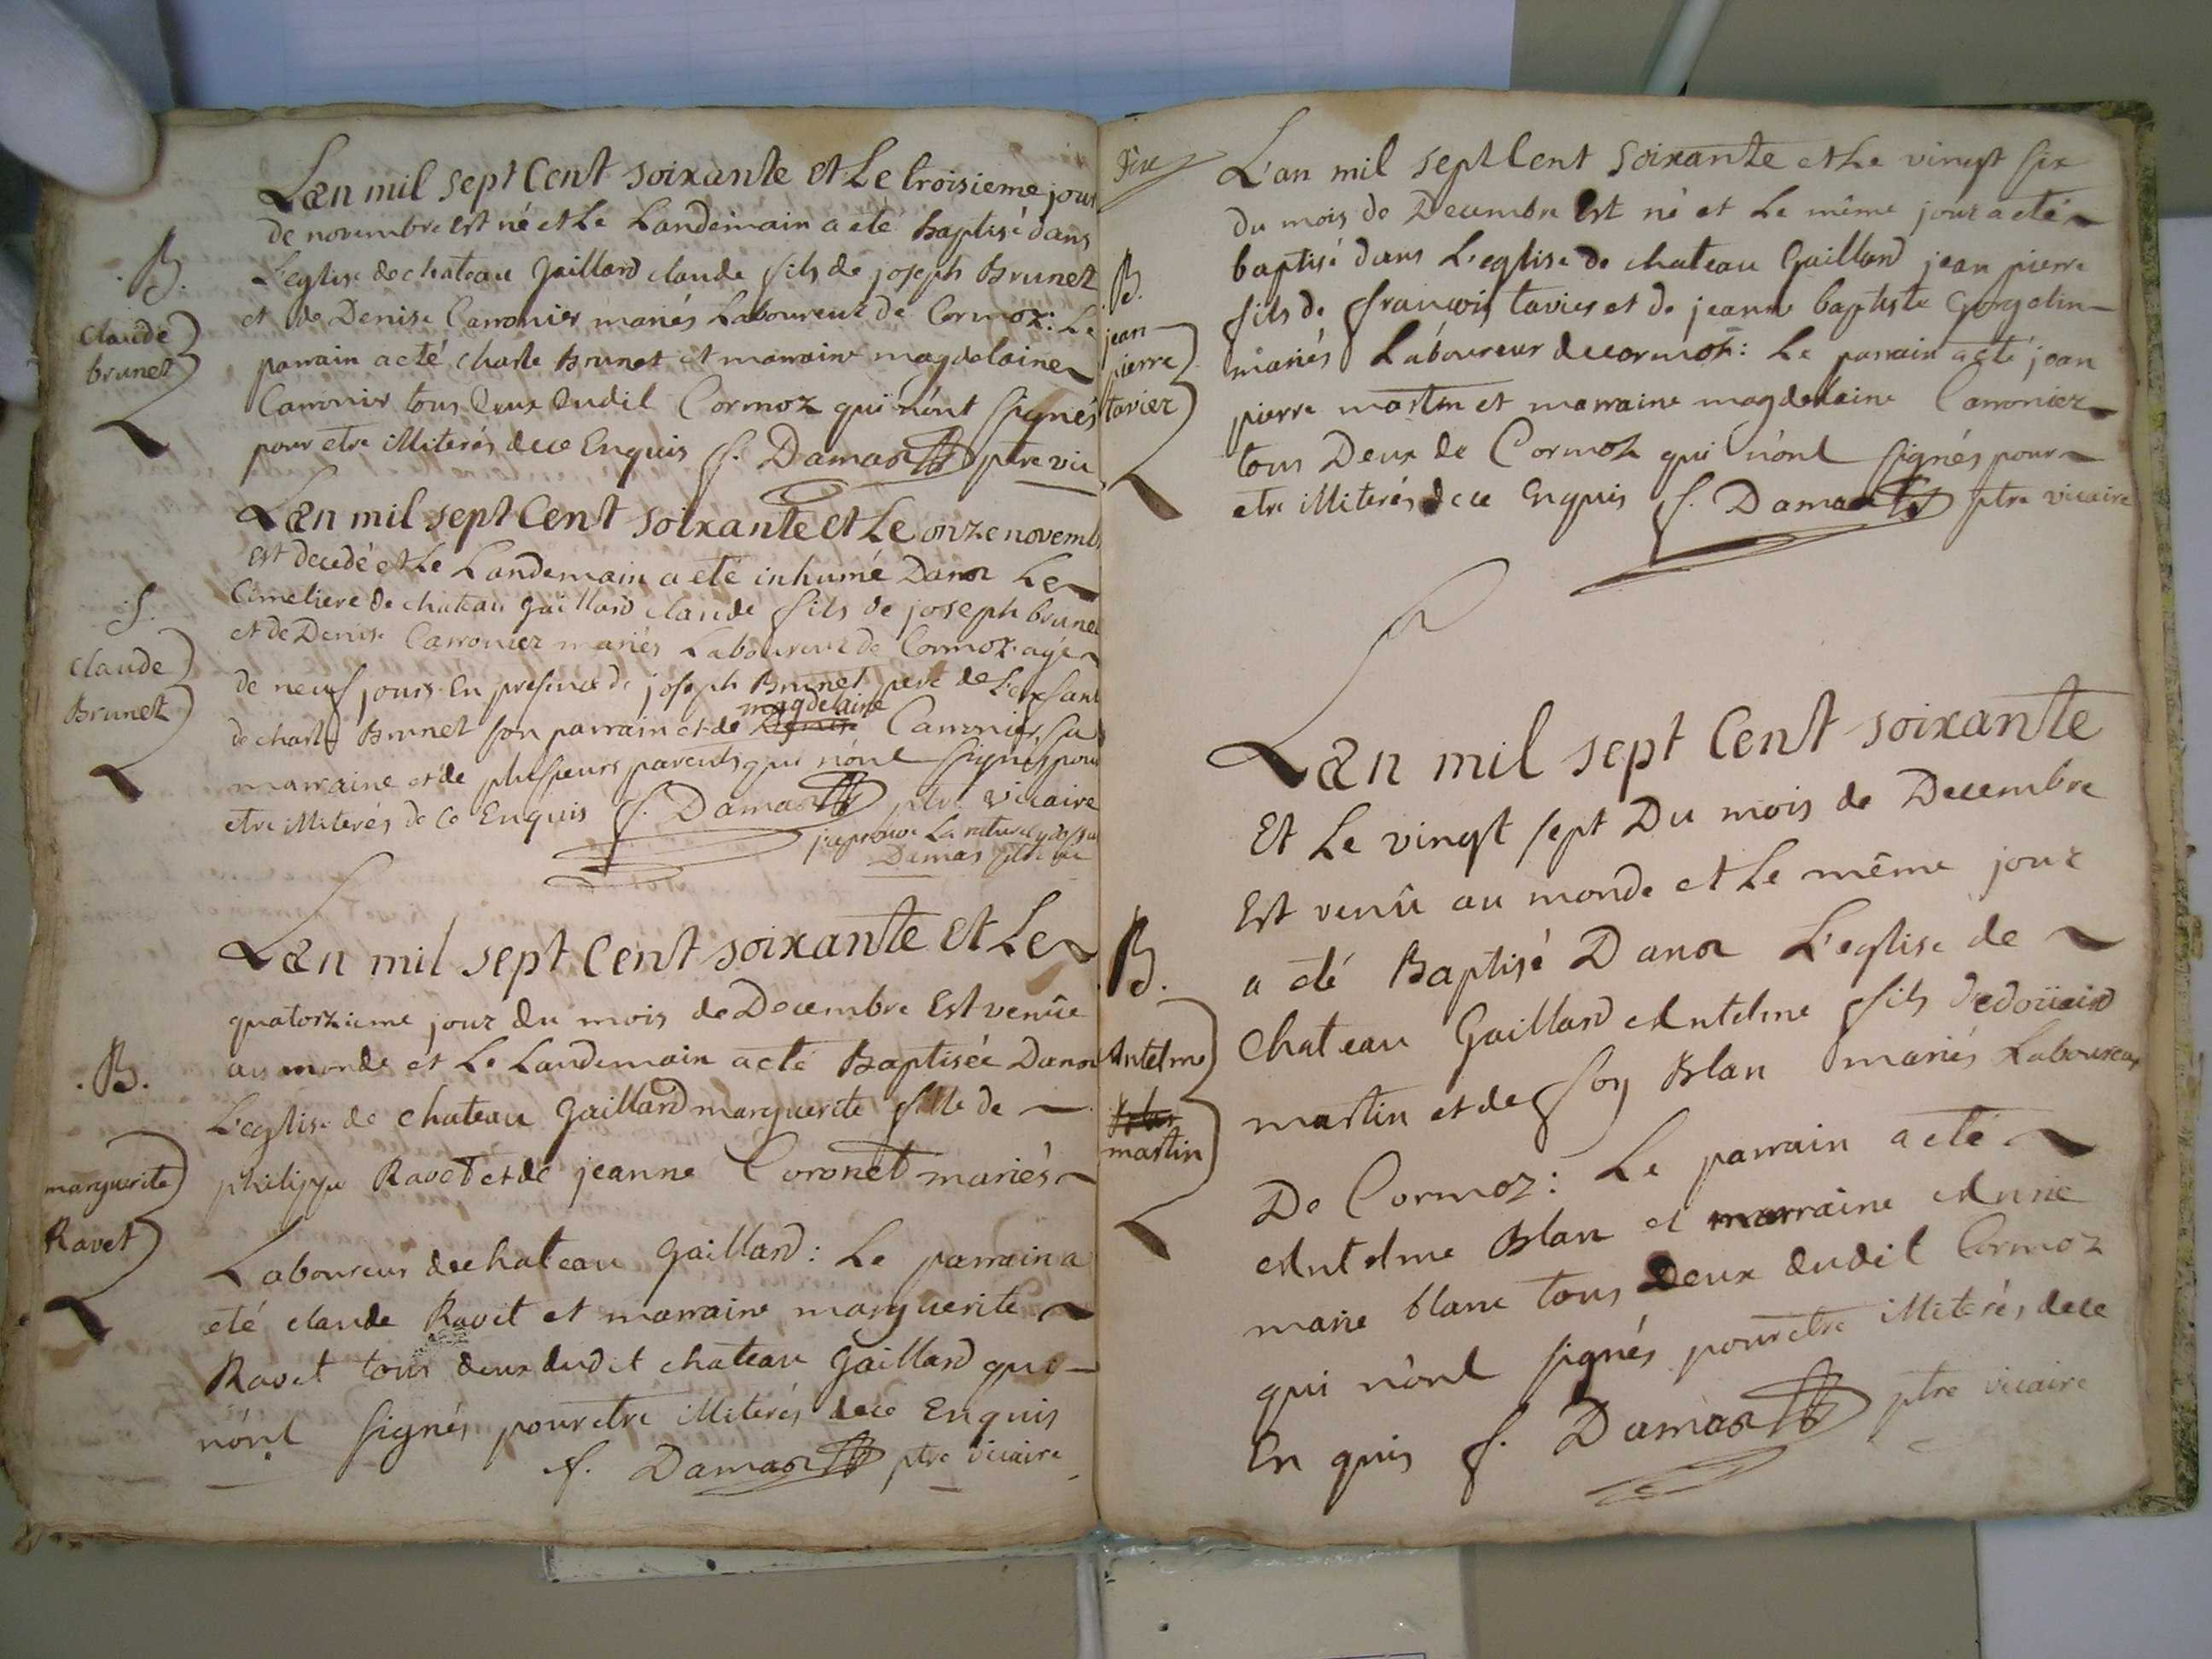 L'an mil sept Cent soixante et Le troisieme jour
de novembre est né et Le Landemain a eté Baptisé dans
L'eglise de chateau Gaillard claude fils de joseph Brunet
et de Denise Carronier mariés Laboureur de Cormoz: Le
parrain a eté charle Brunet et marraine magdelaine
Carronier tous deux dudit Cormoz qui n'ônt signés
pour etre illiterés de ce Enquis f. Damas ptre vic
B.
claude
brunet
L'an mil sept Cent soixante et Le onze novemb
est decedé et Le Landemain a eté inhumé Dans Le
Cimetiere de chateau gaillard claude fils de joseph brunet
et de Denise Carronier mariés Laboureur de Cormoz agé
de neuf jours En presence de joseph Brunet pere de L'enfant
de charle Brunet son parrain et de magdelaine Carronier, sa
marraine et de plusieurs parents qui n'ônt signés pour
etre illiterés de ce Enquis f. Damas ptre vicaire
j'approuve La rature cy dessu
Damas ptre vic
S.
claude
Brunet
L'an mil sept Cent soixante et Le
quatorzieme jour du mois de Decembre Est venûe
au monde et Le Landemain a eté Baptisée Dans
L'eglise de chateau Gaillard marguerite fille de
philippe Ravet et de jeanne Coronet mariés
Laboureur de chateau Gaillard: Le parrain a
eté claude Ravet et marraine marguerite
Ravet tous deux dudit chateau Gaillard qui
n'ônt signés pour etre illiterés de ce Enquis
f. Damas ptre vicaire
.B.
marguerite
Ravet
L'an mil sept Cent soixante et Le vingt six
du mois de Decembre Est né et Le même jour a eté
baptisé dans L'eglise de chateau Gaillard jean pierre
fils de françois tavier et de jeanne baptiste Gorgelin
mariés Laboureur de cormoz: Le parrain a eté jean
pierre martin et marraine magdelaine Carronier
tous Deux de Cormoz qui n'ônt signés pour
etre illiterés de ce Enquis f. Damas ptre vicaire
B.
jean
pierre
tavier
L'an mil sept Cent soixante
Et Le vingt sept Du mois de Decembre
Est venû au monde et Le même jour
a eté Baptisé Dans L'eglise de
Chateau Gaillard Antelme fils d'edoüard
martin et de foy Blan mariés Laboureur
De Cormoz: Le parrain a eté
Antelme Blan et marraine Anne
marie blanc tous Deux dudit Cormoz
qui n'ônt signés pour etre illiterés de ce
En quis f. Damas ptre vicaire
B.
Antelme
martin